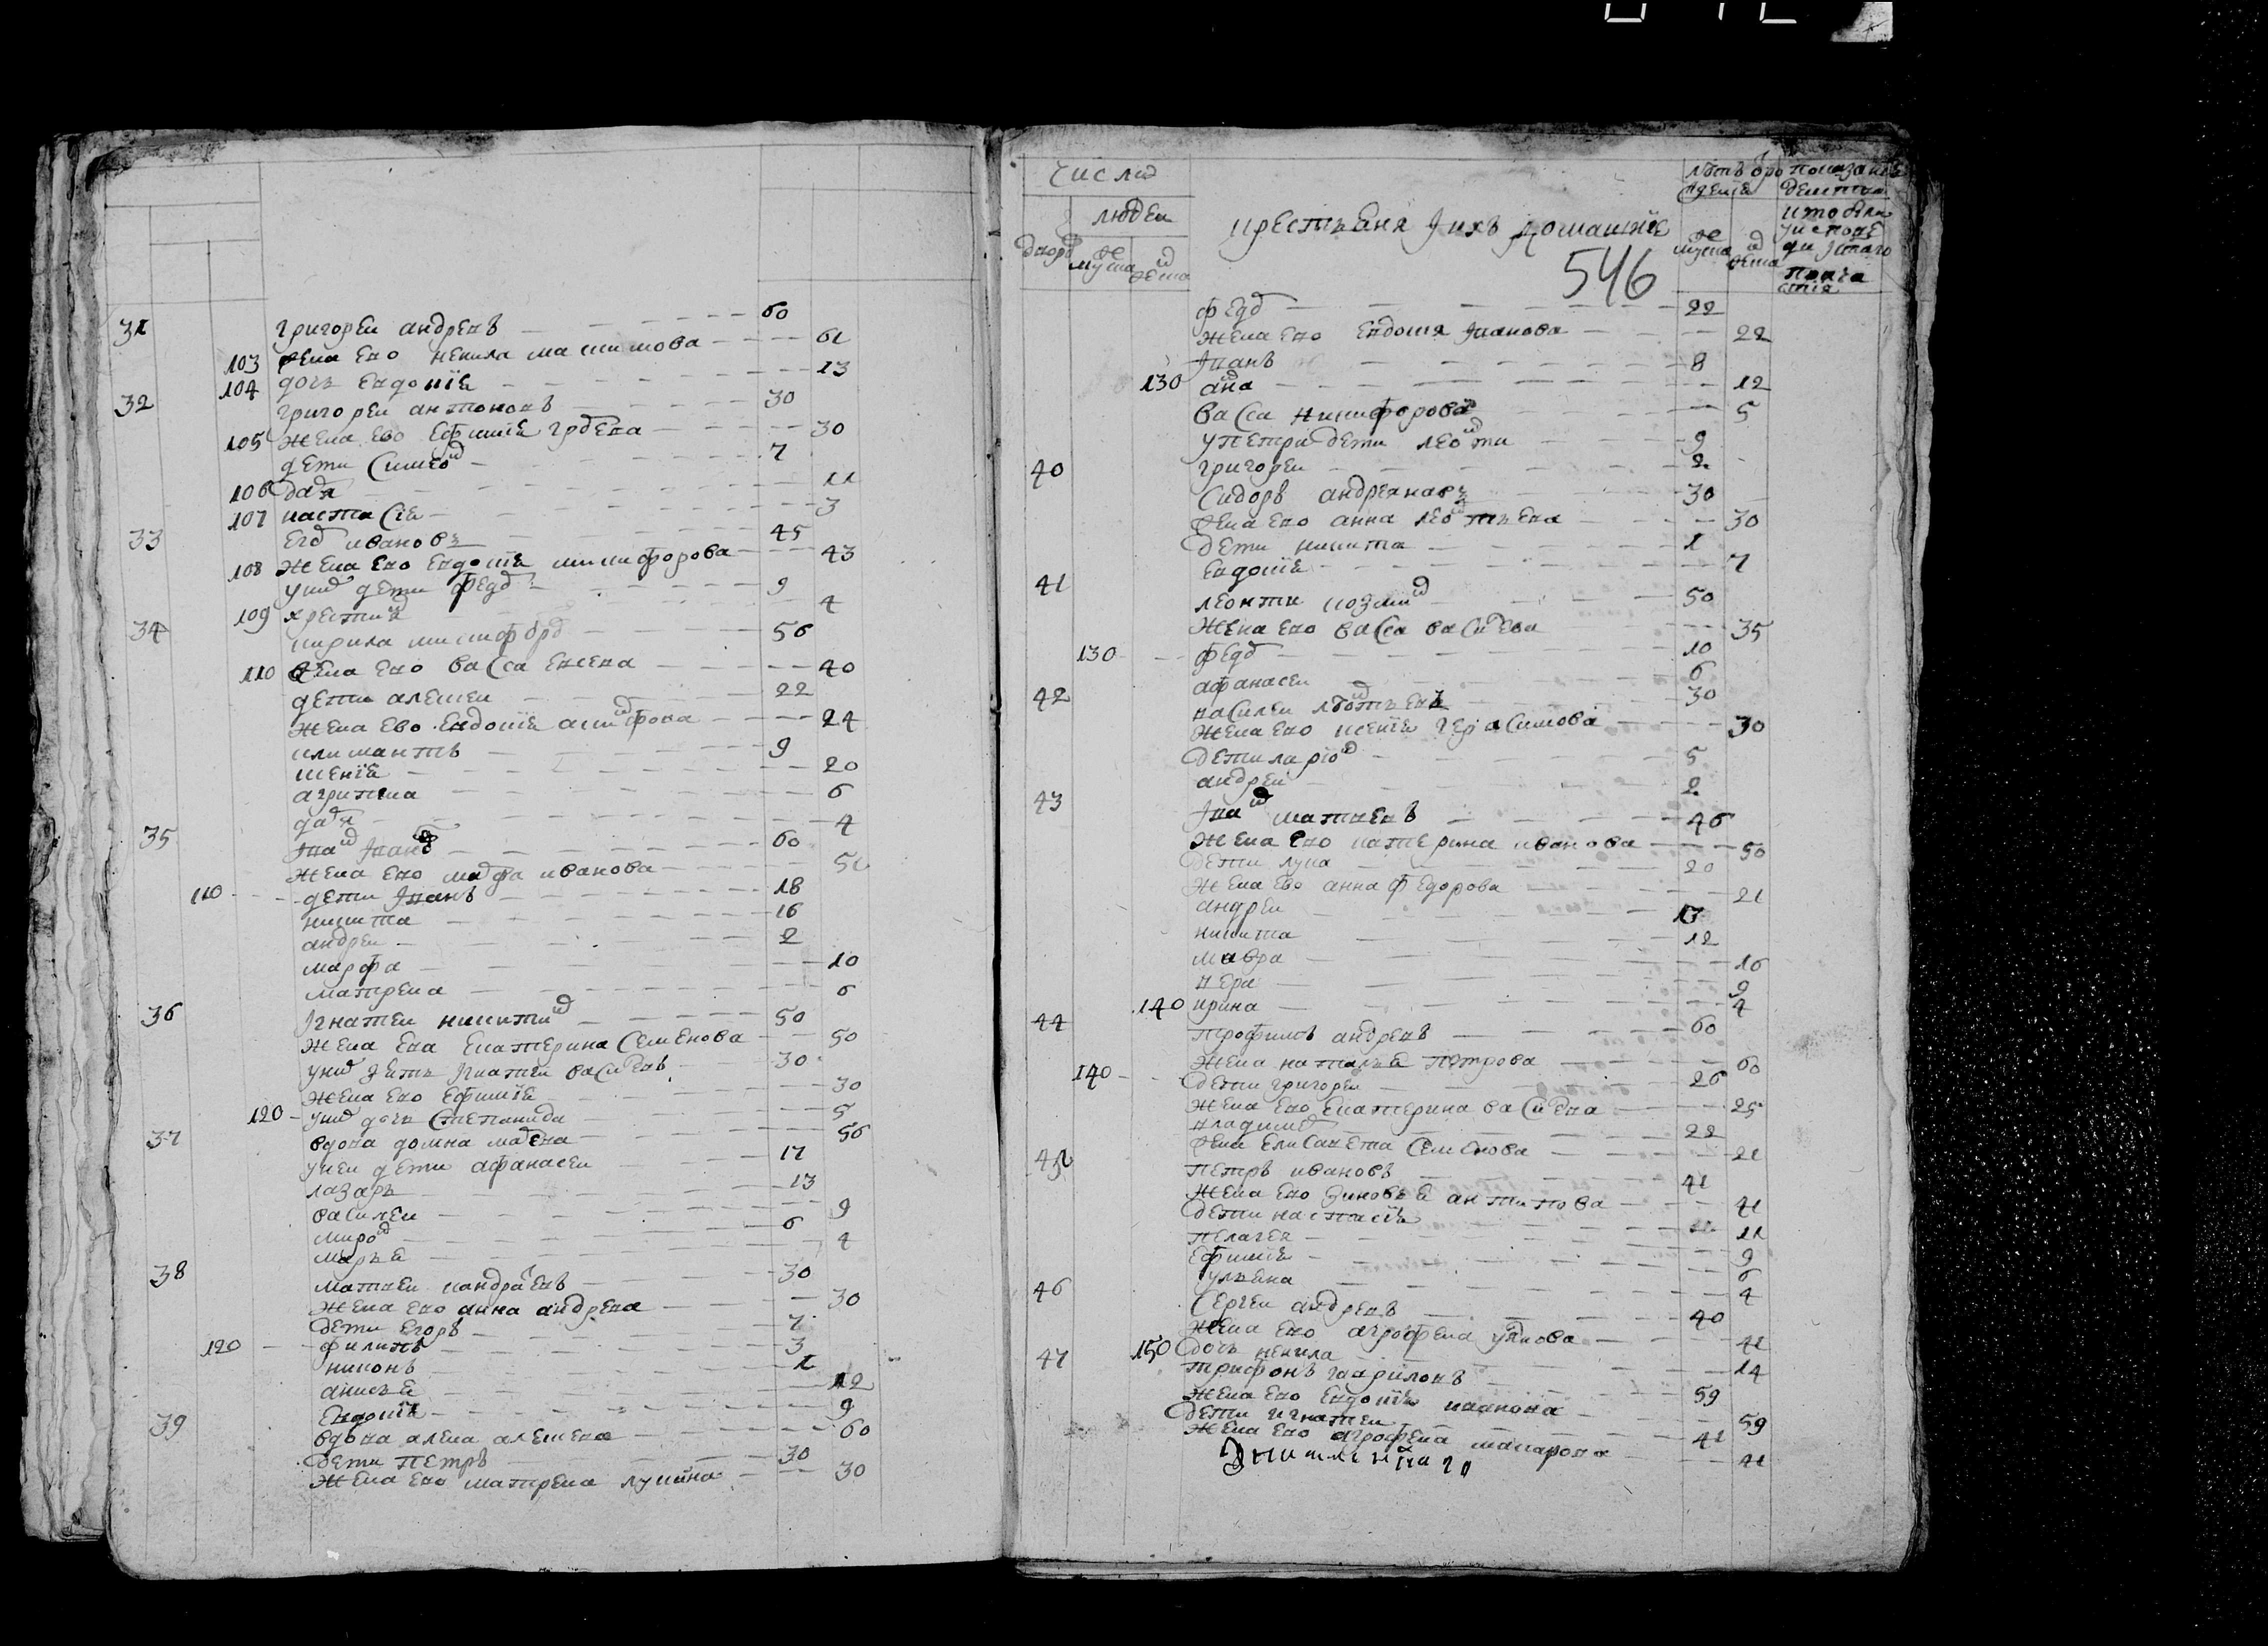 31 григореи андреевъ 60
103 жена ево ненила максимова 61
104 дочь евдокія 13
32 григореи антоновъ 30
105 жена ево ефимія 30
дети симеон 7
106 дарья 11
107 настасія 3
33 егоръ ивановъ 45
108 жена ево евдокія никифорова 43
у них дети федор 9
109 хрестина 4
34 кирила никифоров 56
110 жена ево васса евсеева 40
дети алексеи 22
жена ево евдокія 24
климантъ 9
ксенія 20
агрипина 6
дарья 4
35 Iван Iванов 60
жена ево марфа иванова
110 дети Iванъ 18
никита 16
андреи 2
марфа 10
матрена 6
36 Iгнатеи никитин 50
жена ева екатерина семенова 50
у них зять Iгнатеи васильевъ 30
жена ево ефимія 30
120 у них дочь степанида 5
37 вдова домна 56
у неи дети афанасеи 17
лазарь 13
василеи 9
мирон 6
марья 4
38 матвеи кондратевъ 30
жена ево анна андреева 30
дети егоръ 7
120 филипъ 3
никонъ 1
анисья 12
евдокія 9
39 вдова алена алексеева 60
дети петръ 30
жена ево матрена лукина 30
числа
людеи
дворов мужеска женска
крестьяня Iихъ домашнія
546
мужеска женска
федор 22
жена ево евдокия Iванова 22
Iванъ 8
130 анна 12
васса никифорова 5
у петра дети леонти 9
григореи 2
40 сидоръ андреяновъ 30
жена ево анна леонтьева 30
дети никита 1
евдокія 7
41 леонти козмин 50
жена ево васса васильева 35
130 федор 10
афанасеи 6
42 василеи леонтьевъ 30
жена ево ксенія герасимова 30
дети ларион 5
андреи 2
43 Iван матвеевъ 46
жена ево катерина иванова 50
дети лука 20
жена ево анна федорова 21
андреи 13
никита 12
мавра 16
вера 9
140 ирина 4
44 трофимъ андреевъ 60
жена наталья петрова 60
140 дети григореи 26
жена ево екатерина васильева 25
владимер 22
жена елисавета семенова 21
45 петръ ивановъ 41
жена ево зиновья антипова 41
дети настасія 11
пелагея 9
ефимія 6
ульяна 4
46 сергеи андреевъ 40
жена ево агрофена 41
150 дочь ненила 14
47 трифонъ гавриловъ 59
жена ево евдокія иванова 59
дети игнатеи 41
жена ево агрофена макарова 41